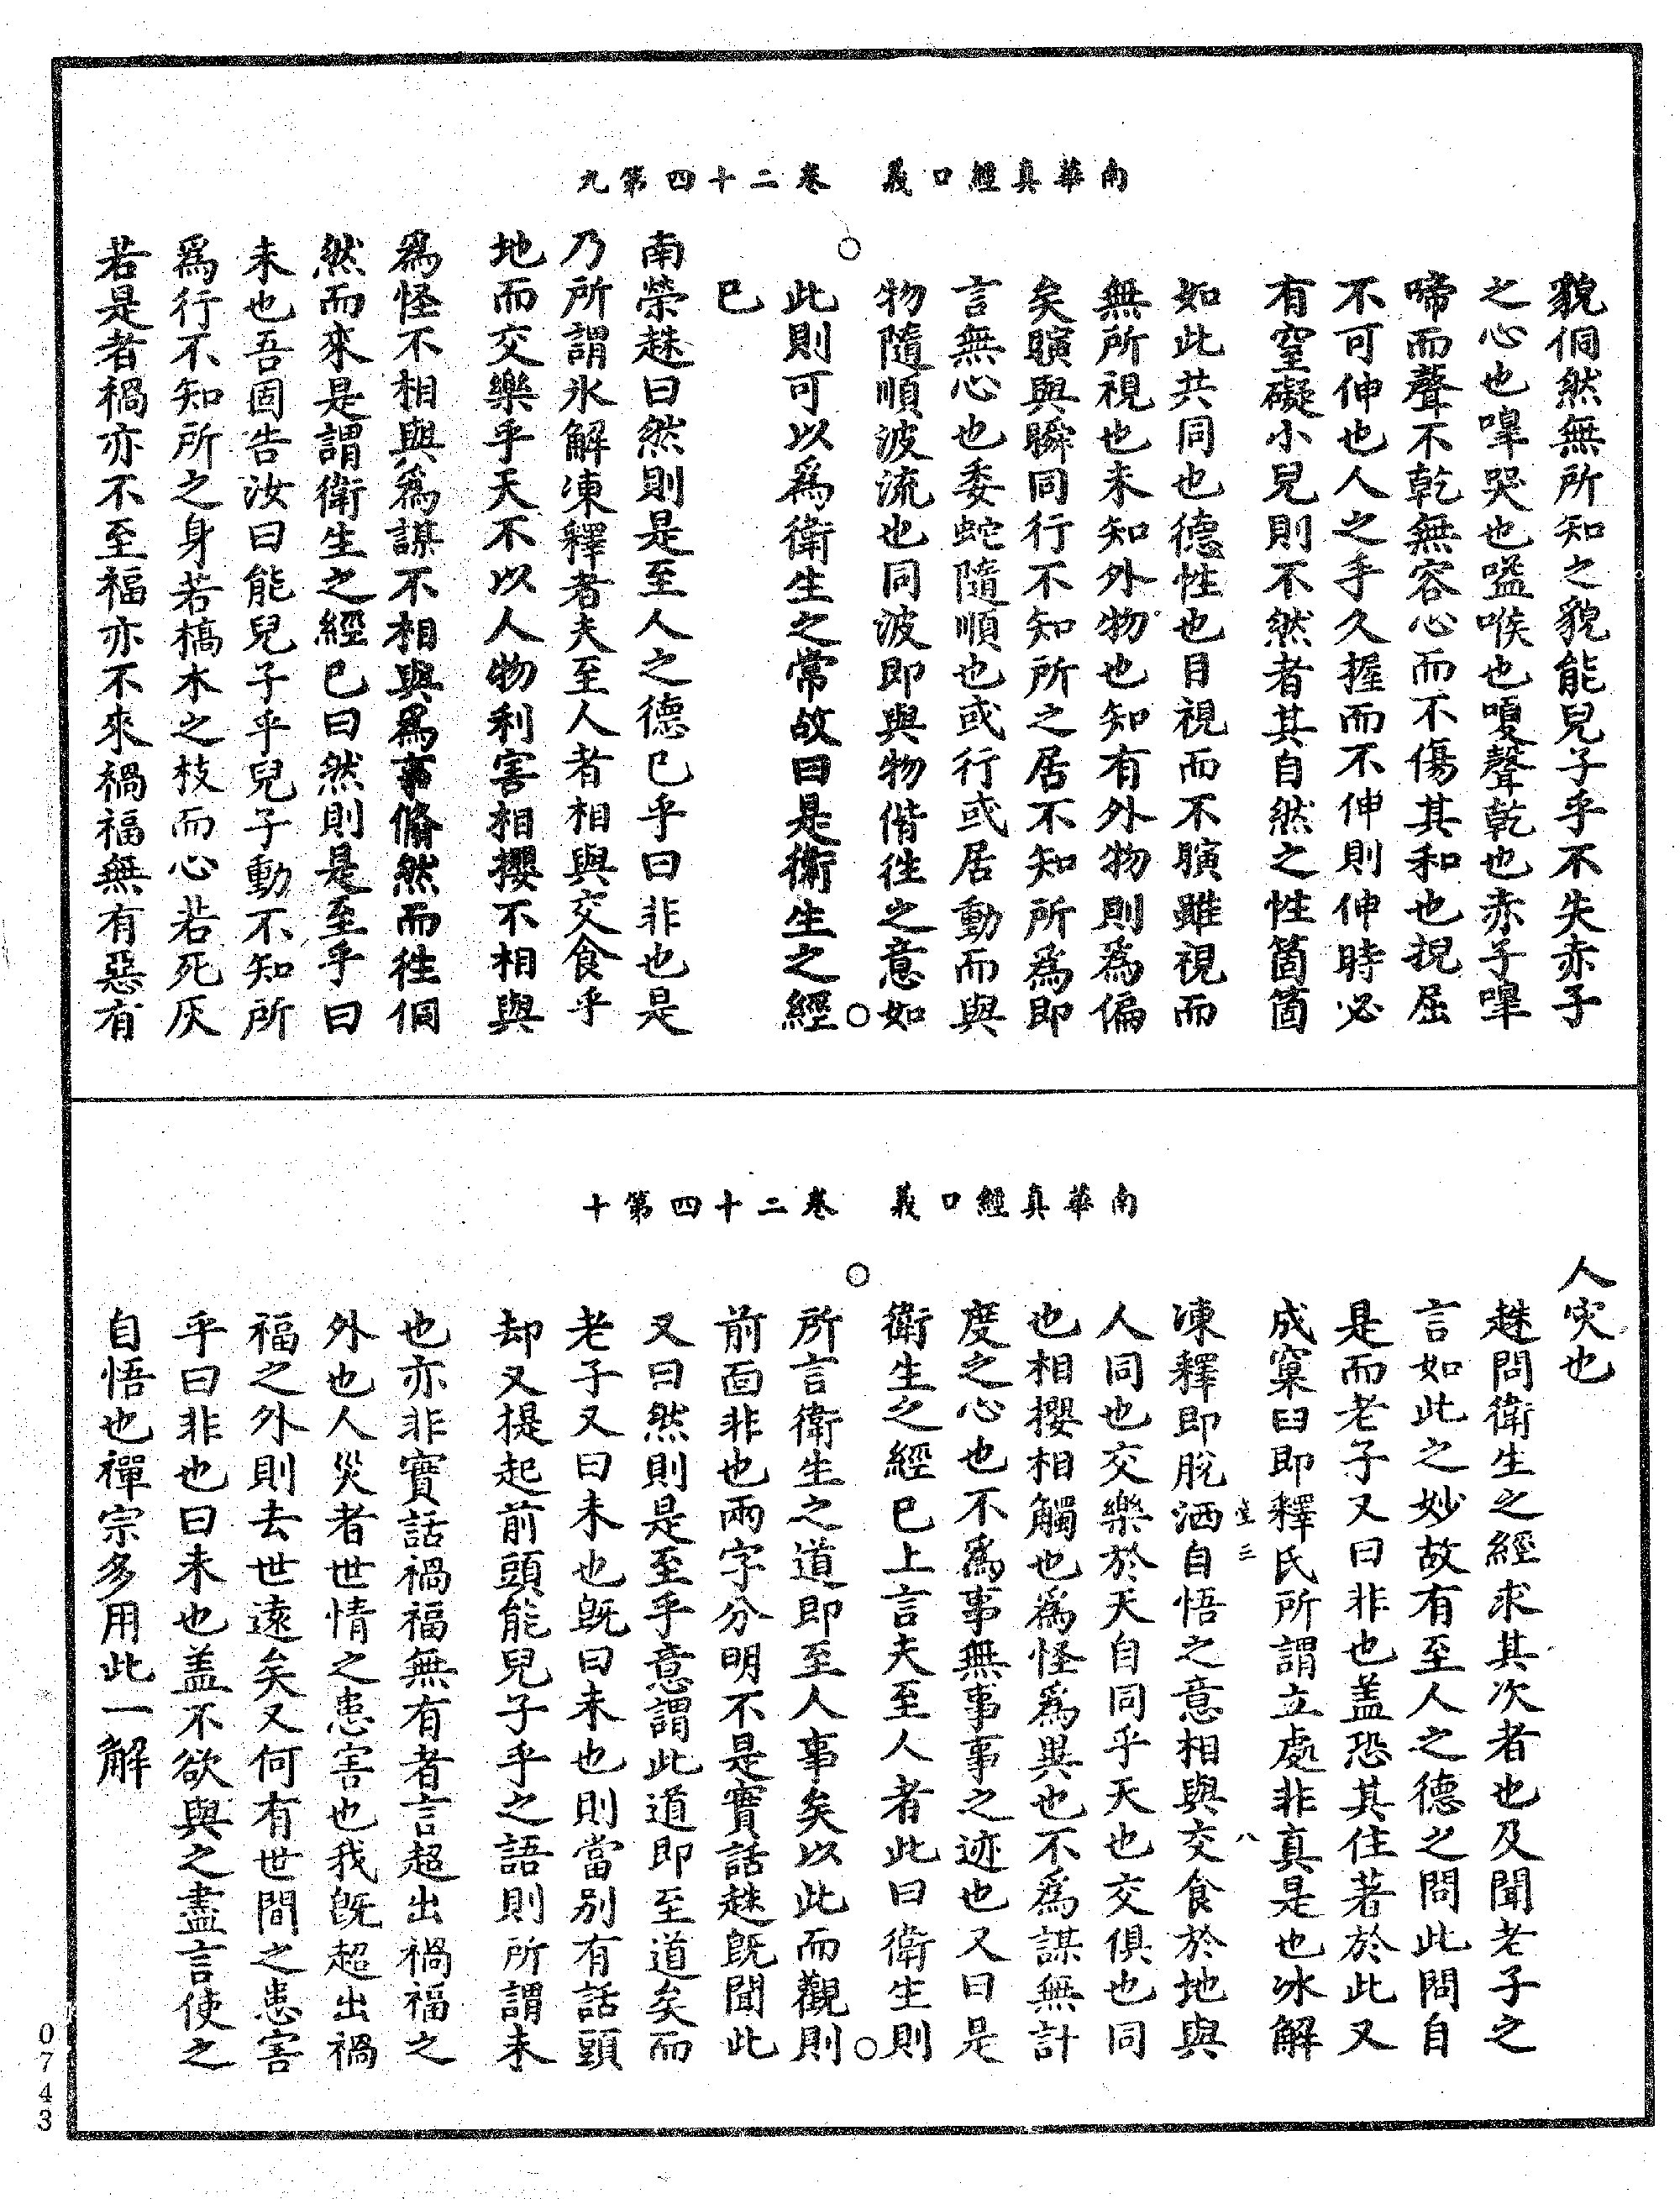 南華真經口義　卷二十四第九
貌侗然無所知之貌能兒子乎不失赤子
之心也嘷哭也嗌喉也嗄聲乾也赤子嘷
啼而聲不乾無容心而不傷其和也掜屈
不可伸也人之手久握而不伸則伸時必
有窒礙小兒則不然者其自然之性箇箇
如此共同也德性也目視而不瞚雖視而
無所視也未知外物也知有外物則為偏
矣瞚與瞬同行不知所之居不知所為即
言無心也委蛇隨順也或行或居動而與
物隨順波流也同波即與物偕往之意如
此則可以為衛生之常故曰是衛生之經
已
南榮趎曰然則是至人之德已乎曰非也是
乃所謂氷解凍釋者夫至人者相與交食乎
地而交樂乎天不以人物利害相攖不相與
為怪不相與為謀不相與為事翛然而往侗
然而來是謂衛生之經已曰然則是至乎曰
未也吾固告汝曰能兒子乎兒子動不知所
為行不知所之身若槁木之枝而心若死灰
若是者禍亦不至福亦不來禍福無有惡有
南華真經口義　卷二十四第十
人災也
趎問衛生之經求其次者也及聞老子之
言如此之妙故有至人之德之問此問自
是而老子又曰非也盖恐其住著於此又
成窠臼即釋氏所謂立處非真是也冰解
凍釋即脫洒自悟之意相與交食於地與
人同也交樂於天自同乎天也交俱也同
也相攖相觸也為怪為異也不為謀無計
度之心也不為事無事事之迹也又曰是
衛生之經已上言夫至人者此曰衛生則
所言衛生之道即至人事矣以此而觀則
前面非也兩字分明不是實話趎既聞此
又曰然則是至乎意謂此道即至道矣而
老子又曰未也既曰未也則當別有話頭
却又提起前頭能兒子乎之語則所謂未
也亦非實話禍福無有者言超出禍福之
外也人災者世情之患害也我既超出禍
福之外則去世遠矣又何有世間之患害
乎曰非也曰未也盖不欲與之盡言使之
自悟也禪宗多用此一解
0743